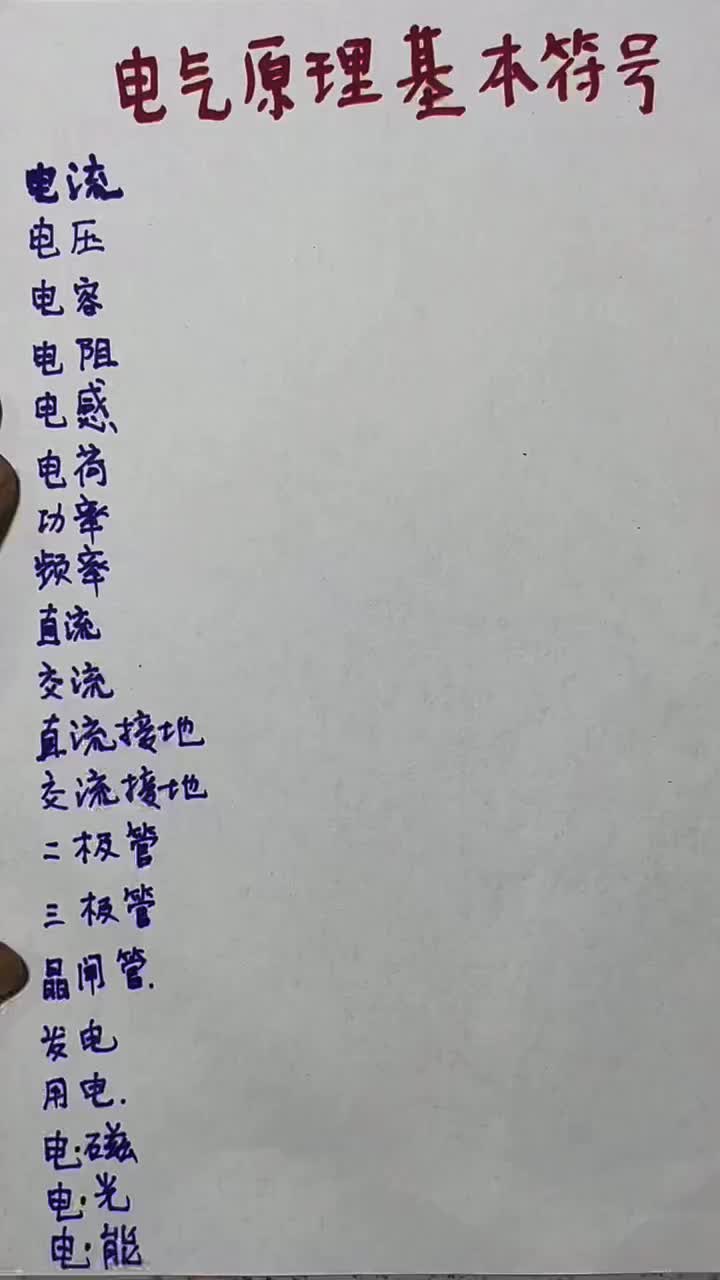 电气原理基本符号
电流
电压
电容
电阻
电感、
电荷
功率
频率
直流
交流
直流接地
交流接地
二极管
三极管
晶闸管.
发电
用电.
电·磁
电·光
电·能